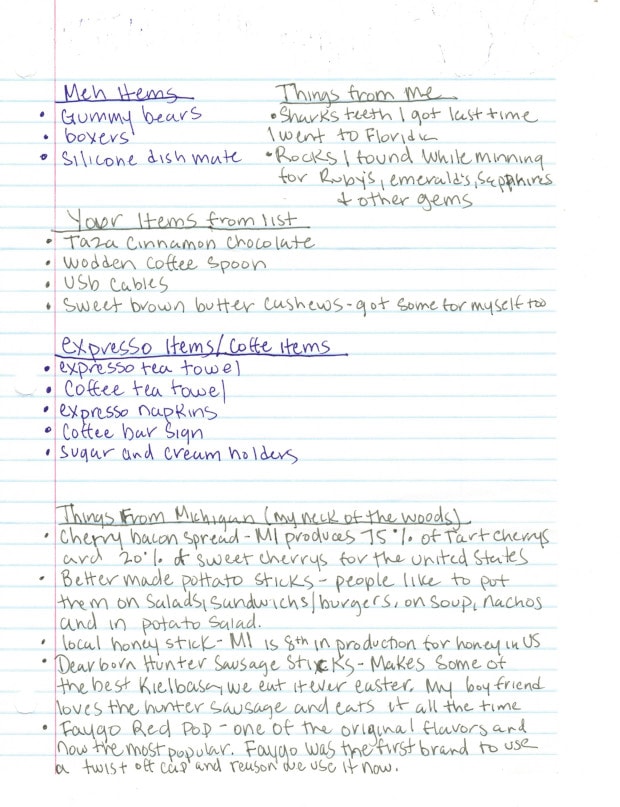 Meh Items
• Gummy bears
• boxers
• Silicone dish mate
Things from me
• Sharks teeth I got last time
I went to Florida
• Rocks I found while minning
for Ruby's, emerald's, Sapphires
& other gems
Your Items from list
• Taza Cinnamon Chocolate
• Wodden Coffee Spoon
• USb Cables
• Sweet brown butter Cushews - got some for myself too
expresso Items/Coffe items
• expresso tea towel
• Coffee tea towel
• expresso napkins
• Coffee bar Sign
• Sugar and cream holders
Things From Michigan (my neck of the woods)
• Cherry bacon spread - MI produces 75% of Tart cherrys
and 20% of sweet cherrys for the United States
• Better made pottato sticks - people like to put
them on Salads, Sandwichs/burgers, on soup, nachos
and in potato salad.
• local honey stick - MI is 8th in production for honey in US
• Dearborn Hunter Sausage Sticks - Makes some of
the best Kielbasa, we eat it ever easter. My boyfriend
loves the hunter sausage and eats it all the time
• Faygo Red Pop - one of the original flavors and
now the most popular. Faygo was the first brand to use
a twist off cap and reason we use it now.